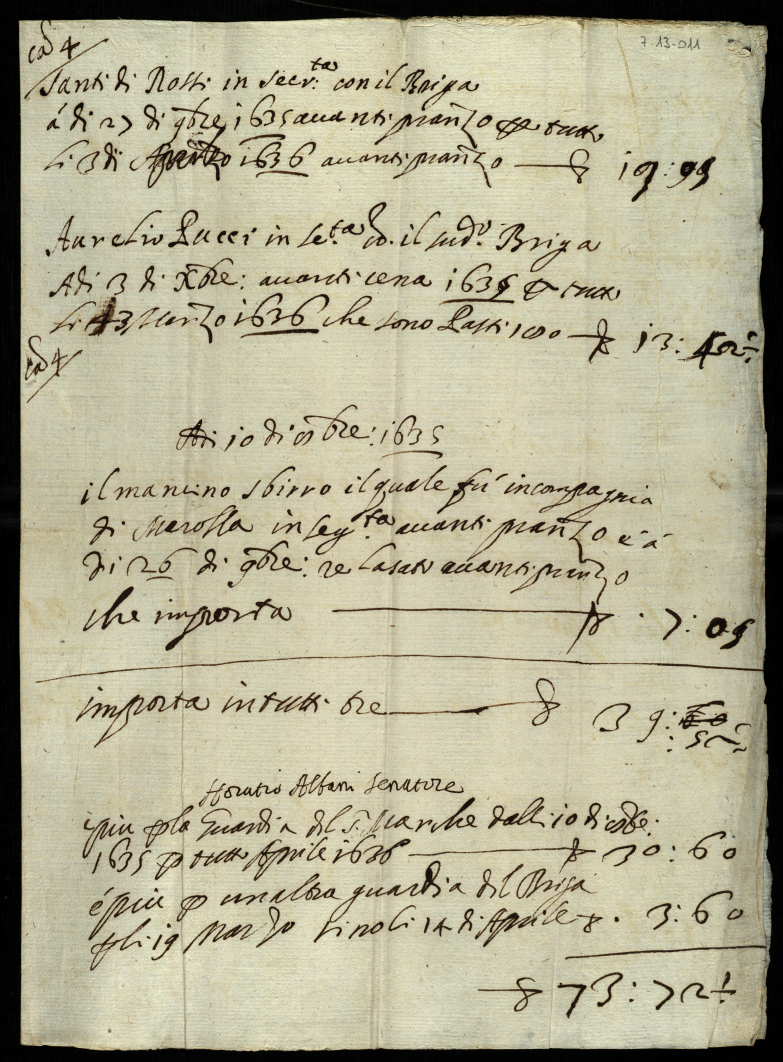 7-13-011
Santi di Rossi in secr:ta con il Briga
á di 27 di 9bre, 1635 auanti pranzo tutto
li 3 di 1636 auanti pranzo 19:95
Aurelio Pucci in se.ta co. il sud.o Briga
Adi 3 di Xbre: auanti cena 1635 tutto
li 3 Marzo 1636 che sono Pasti 180 13:
Adi 10 di 8bre: 1635
il mancino sbirro il quale fu in compagnia
di Marossa in seg:ta auanti pranzo e á
di 26 di 9bre: relasato auanti pranzo
che importa 7:05
importa in tutti tre 39:
Horatio Albani Senatore
e piu la Guardia del S. Marche dalli 10 di 8bre:
1635 tutto Aprile 1636 30:60
é piu un altra guardia del Briga
li 19 Marzo sino li 14 di Aprile 3:60
73:72½